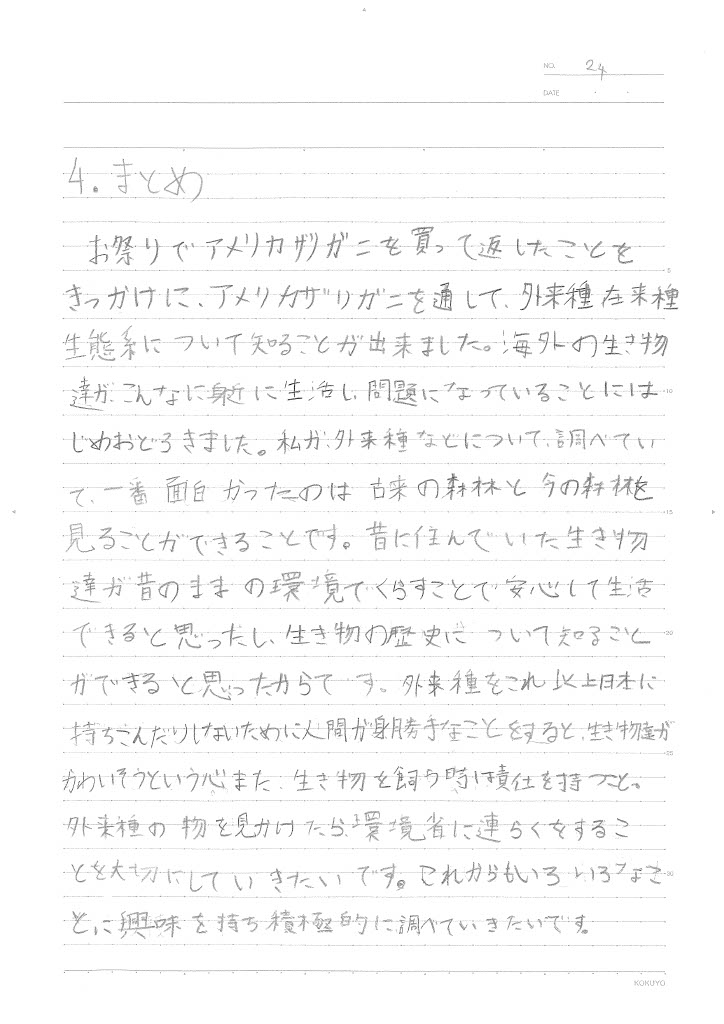 NO. 24
DATE
4. まとめ
お祭りでアメリカザリガニを買って返したことを
きっかけに、アメリカザリガニを通して、外来種在来種
生態系について知ることが出来ました。海外の生き物
達が、こんなに身近に生活し、問題になっていることには
じめおどろきました。私が、外来種などについて、調べてい
て、一番面白かったのは古来の森林と今の森林を
見ることができることです。昔に住んでいた生き物
達が昔のままの環境でくらすことで安心して生活
できると思ったし、生き物の歴史について知ること
ができると思ったからです。外来種をこれ以上日本に
持ちこんだりしないために人間が身勝手なことをすると、生き物達が
かわいそうという心また、生き物を飼う時は責任を持つこと。
外来種の物を見かけたら、環境省に連らくをするこ
とを大切にしていきたいです。これからもいろいろなこ
とに興味を持ち積極的に調べていきたいです。
5
10
15
20
25
30
KOKUYO